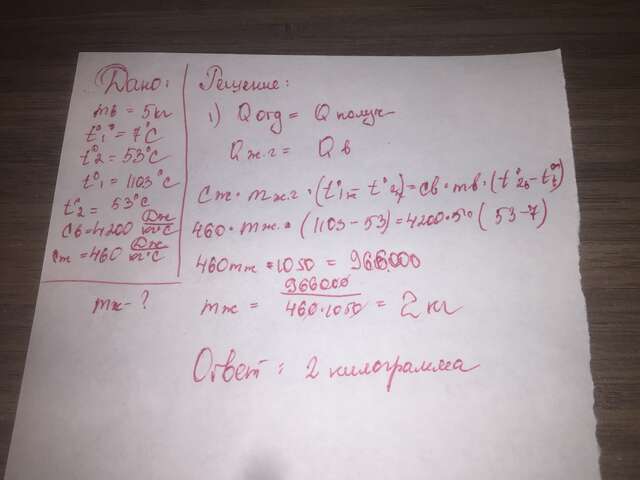 Дано:
mв = 5кг
t°1 = 7°C
t°2 = 53°C
t°1 = 1103°C
t°2 = 53°C
cв = 4200 Дж/кг°C
cж = 460 Дж/кг°C
mж - ?
Решение:
1) Q отд = Q получ
Qж.г = Qв
Cж · mж.г · (t°1ж - t°2) = Cв · mв · (t°2в - t°1)
460 · mж · (1103 - 53) = 4200 · 5 · (53 - 7)
460mж · 1050 = 966000
mж = 966000/460·1050 = 2кг
Ответ: 2 килограмма